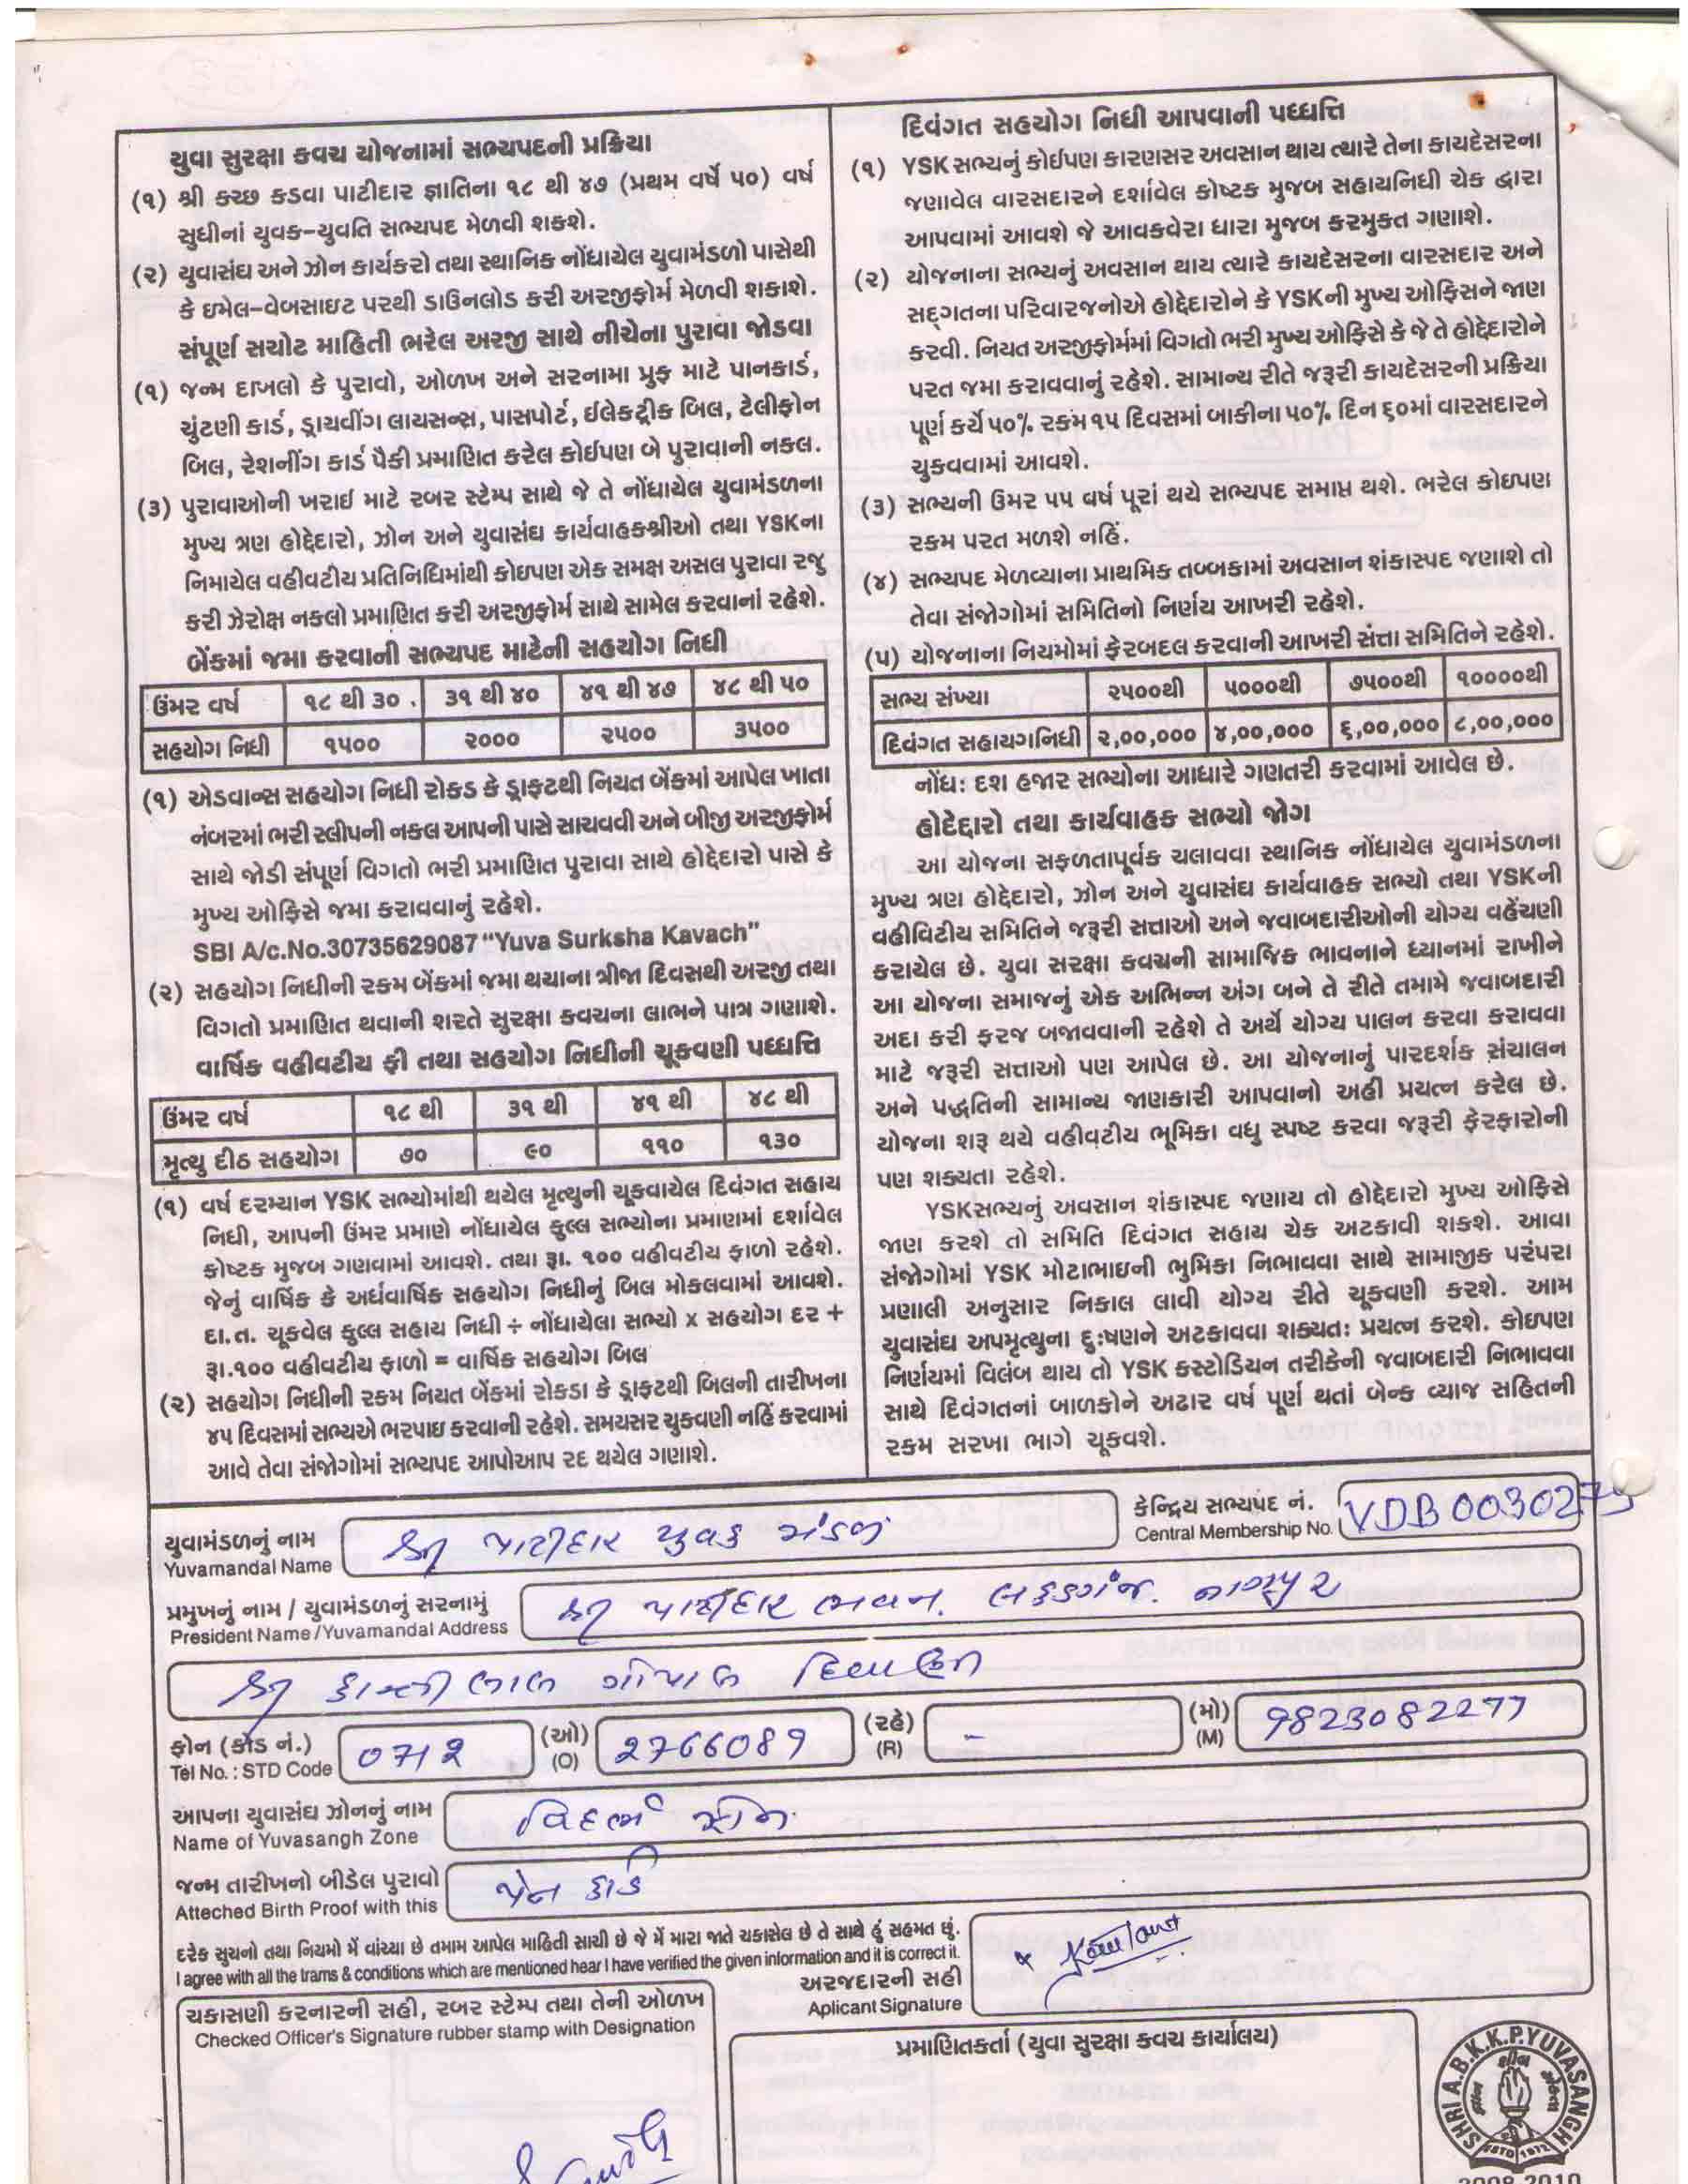 યુવા સુરક્ષા કવચ યોજનામાં સભ્યપદની પ્રક્રિયા
(૧) શ્રી કચ્છ કડવા પાટીદાર જ્ઞાતિના ૧૮ થી ૪૭ (પ્રથમ વર્ષે ૫૦) વર્ષ
સુધીનાં યુવક-યુવતિ સભ્યપદ મેળવી શકશે.
(૨) યુવાસંઘ અને ઝોન કાર્યકરો તથા સ્થાનિક નોંધાયેલ યુવામંડળો પાસેથી
કે ઇમેલ-વેબસાઇટ પરથી ડાઉનલોડ કરી અરજીફોર્મ મેળવી શકાશે.
સંપૂર્ણ સચોટ માહિતી ભરેલ અરજી સાથે નીચેના પુરાવા જોડવા
(૧) જન્મ દાખલો કે પુરાવો, ઓળખ અને સરનામા પ્રુફ માટે પાનકાર્ડ,
ચુંટણી કાર્ડ, ડ્રાયવીંગ લાયસન્સ, પાસપોર્ટ, ઈલેક્ટ્રીક બિલ, ટેલીફોન
બિલ, રેશનીંગ કાર્ડ પૈકી પ્રમાણિત કરેલ કોઈપણ બે પુરાવાની નકલ.
(૩) પુરાવાઓની ખરાઈ માટે રબર સ્ટેમ્પ સાથે જે તે નોંધાયેલ યુવામંડળના
મુખ્ય ત્રણ હોદ્દેદારો, ઝોન અને યુવાસંઘ કાર્યવાહકશ્રીઓ તથા YSKના
નિમાયેલ વહીવટીય પ્રતિનિધિમાંથી કોઇપણ એક સમક્ષ અસલ પુરાવા રજુ
કરી ઝેરોક્ષ નકલો પ્રમાણિત કરી અરજીફોર્મ સાથે સામેલ કરવાનાં રહેશે.
બેંકમાં જમા કરવાની સભ્યપદ માટેની સહયોગ નિધી
ઉંમર વર્ષ ૧૮ થી ૩૦ ૩૧ થી ૪૦ ૪૧ થી ૪૭ ૪૮ થી ૫૦
સહયોગ નિધી ૧૫૦૦ ૨૦૦૦ ૨૫૦૦ ૩૫૦૦
(૧) એડવાન્સ સહયોગ નિધી રોકડ કે ડ્રાફ્ટથી નિયત બેંકમાં આપેલ ખાતા
નંબરમાં ભરી સ્લીપની નકલ આપની પાસે સાચવવી અને બીજી અરજીફોર્મ
સાથે જોડી સંપૂર્ણ વિગતો ભરી પ્રમાણિત પુરાવા સાથે હોદ્દેદારો પાસે કે
મુખ્ય ઓફિસે જમા કરાવવાનું રહેશે.
SBI A/c.No.30735629087 "Yuva Surksha Kavach"
(૨) સહયોગ નિધીની રકમ બેંકમાં જમા થયાના ત્રીજા દિવસથી અરજી તથા
વિગતો પ્રમાણિત થવાની શરતે સુરક્ષા કવચના લાભને પાત્ર ગણાશે.
વાર્ષિક વહીવટીય ફી તથા સહયોગ નિધીની ચૂકવણી પધ્ધતિ
ઉંમર વર્ષ ૧૮ થી ૩૧ થી ૪૧ થી ૪૮ થી
મૃત્યુ દીઠ સહયોગ ૭૦ ૯૦ ૧૧૦ ૧૩૦
(૧) વર્ષ દરમ્યાન YSK સભ્યોમાંથી થયેલ મૃત્યુની ચૂકવાયેલ દિવંગત સહાય
નિધી, આપની ઉંમર પ્રમાણે નોંધાયેલ કુલ્લ સભ્યોના પ્રમાણમાં દર્શાવેલ
કોષ્ટક મુજબ ગણવામાં આવશે. તથા રૂા. ૧૦૦ વહીવટીય ફાળો રહેશે.
જેનું વાર્ષિક કે અર્ધવાર્ષિક સહયોગ નિધીનું બિલ મોકલવામાં આવશે.
દા.ત. ચૂકવેલ કુલ્લ સહાય નિધી ÷ નોંધાયેલા સભ્યો x સહયોગ દર +
રૂા.૧૦૦ વહીવટીય ફાળો = વાર્ષિક સહયોગ બિલ
(૨) સહયોગ નિધીની રકમ નિયત બેંકમાં રોકડા કે ડ્રાફ્ટથી બિલની તારીખના
૪૫ દિવસમાં સભ્યએ ભરપાઇ કરવાની રહેશે. સમયસર ચુકવણી નહિં કરવામાં
આવે તેવા સંજોગોમાં સભ્યપદ આપોઆપ રદ થયેલ ગણાશે.
દિવંગત સહયોગ નિધી આપવાની પધ્ધત્તિ
(૧) YSK સભ્યનું કોઈપણ કારણસર અવસાન થાય ત્યારે તેના કાયદેસરના
જણાવેલ વારસદારને દર્શાવેલ કોષ્ટક મુજબ સહાયનિધી ચેક દ્વારા
આપવામાં આવશે જે આવકવેરા ધારા મુજબ કરમુક્ત ગણાશે.
(૨) યોજનાના સભ્યનું અવસાન થાય ત્યારે કાયદેસરના વારસદાર અને
સદ્ગતના પરિવારજનોએ હોદ્દેદારોને કે YSKની મુખ્ય ઓફિસને જાણ
કરવી. નિયત અરજીફોર્મમાં વિગતો ભરી મુખ્ય ઓફિસે કે જે તે હોદ્દેદારોને
પરત જમા કરાવવાનું રહેશે. સામાન્ય રીતે જરૂરી કાયદેસરની પ્રક્રિયા
પૂર્ણ કર્યે ૫૦% રકમ ૧૫ દિવસમાં બાકીના ૫૦% દિન ૬૦માં વારસદારને
ચુકવવામાં આવશે.
(૩) સભ્યની ઉમર ૫૫ વર્ષ પૂરાં થયે સભ્યપદ સમાપ્ત થશે. ભરેલ કોઇપણ
રકમ પરત મળશે નહિં.
(૪) સભ્યપદ મેળવ્યાના પ્રાથમિક તબ્બકામાં અવસાન શંકાસ્પદ જણાશે તો
તેવા સંજોગોમાં સમિતિનો નિર્ણય આખરી રહેશે.
(૫) યોજનાના નિયમોમાં ફેરબદલ કરવાની આખરી સત્તા સમિતિને રહેશે.
સભ્ય સંખ્યા ૨૫૦૦થી ૫૦૦૦થી ૭૫૦૦થી ૧૦૦૦૦થી
દિવંગત સહાયગનિધી ૨,૦૦,૦૦૦ ૪,૦૦,૦૦૦ ૬,૦૦,૦૦૦ ૮,૦૦,૦૦૦
નોંધઃ દશ હજાર સભ્યોના આધારે ગણતરી કરવામાં આવેલ છે.
હોટેદ્દારો તથા કાર્યવાહક સભ્યો જોગ
આ યોજના સફળતાપૂર્વક ચલાવવા સ્થાનિક નોંધાયેલ યુવામંડળના
મુખ્ય ત્રણ હોદ્દેદારો, ઝોન અને યુવાસંઘ કાર્યવાહક સભ્યો તથા YSKની
વહીવિટીય સમિતિને જરૂરી સત્તાઓ અને જવાબદારીઓની યોગ્ય વહેંચણી
કરાયેલ છે. યુવા સરક્ષા કવચની સામાજિક ભાવનાને ધ્યાનમાં રાખીને
આ યોજના સમાજનું એક અભિન્ન અંગ બને તે રીતે તમામે જવાબદારી
અદા કરી ફરજ બજાવવાની રહેશે તે અર્થે યોગ્ય પાલન કરવા કરાવવા
માટે જરૂરી સત્તાઓ પણ આપેલ છે. આ યોજનાનું પારદર્શક સંચાલન
અને પદ્ધતિની સામાન્ય જાણકારી આપવાનો અહી પ્રયત્ન કરેલ છે.
યોજના શરૂ થયે વહીવટીય ભૂમિકા વધુ સ્પષ્ટ કરવા જરૂરી ફેરફારોની
પણ શક્યતા રહેશે.
YSKસભ્યનું અવસાન શંકાસ્પદ જણાય તો હોદ્દેદારો મુખ્ય ઓફિસે
જાણ કરશે તો સમિતિ દિવંગત સહાય ચેક અટકાવી શકશે. આવા
સંજોગોમાં YSK મોટાભાઇની ભુમિકા નિભાવવા સાથે સામાજીક પરંપરા
પ્રણાલી અનુસાર નિકાલ લાવી યોગ્ય રીતે ચૂકવણી કરશે. આમ
યુવાસંઘ અપમૃત્યુના દુઃષણને અટકાવવા શક્યતઃ પ્રયત્ન કરશે. કોઇપણ
નિર્ણયમાં વિલંબ થાય તો YSK કસ્ટોડિયન તરીકેની જવાબદારી નિભાવવા
સાથે દિવંગતનાં બાળકોને અઢાર વર્ષ પૂર્ણ થતાં બેન્ક વ્યાજ સહિતની
રકમ સરખા ભાગે ચૂકવશે.
યુવામંડળનું નામ શ્રી પાટીદાર યુવક મંડળ કેન્દ્રિય સભ્યપદ નં.
Yuvamandal Name Central Membership No. VDB0030275
પ્રમુખનું નામ / યુવામંડળનું સરનામું શ્રી પાટીદાર ભવન. લકડગંજ. નાગપુર
President Name/Yuvamandal Address
શ્રી કાન્તીલાલ ગોપાલ દિવાણી
ફોન (કોડ નં.) 0712 (ઓ) 2766089 (રહે) - (મો) 9823082277
Tel No. : STD Code (O) (R) (M)
આપના યુવાસંઘ ઝોનનું નામ વિદર્ભ ઝોન
Name of Yuvasangh Zone
જન્મ તારીખનો બીડેલ પુરાવો પેન કાર્ડ
Atteched Birth Proof with this
દરેક સુચનો તથા નિયમો મેં વાંચ્યા છે તમામ આપેલ માહિતી સાચી છે જે મેં મારા જાતે ચકાસેલ છે તે સાથે હું સહમત છું.
I agree with all the trams & conditions which are mentioned hear I have verified the given information and it is correct it.
અરજદારની સહી
Aplicant Signature
ચકાસણી કરનારની સહી, રબર સ્ટેમ્પ તથા તેની ઓળખ
Checked Officer's Signature rubber stamp with Designation
પ્રમાણિતકર્તા (યુવા સુરક્ષા કવચ કાર્યાલય)
SHRI A.B.K.K.P. YUVASANGH
ESTD 1972
2008-2010